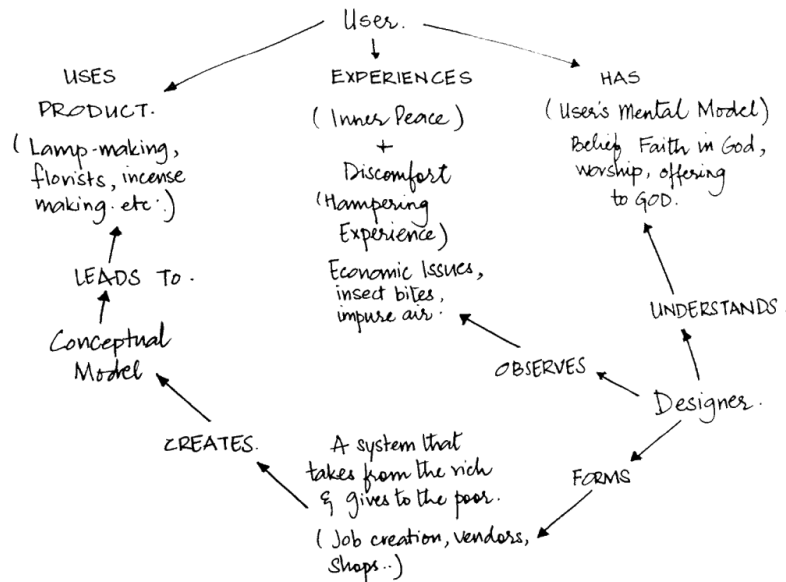 User.
USES
PRODUCT.
(Lamp-making,
florists, incense
making. etc.)
EXPERIENCES
(Inner Peace)
+
Discomfort
(Hampering
Experience)
Economic Issues,
insect bites,
impure air.
HAS
(User's Mental Model)
Belief, Faith in God,
worship, offering
to GOD.
LEADS TO.
UNDERSTANDS.
Conceptual
Model
OBSERVES
Designer.
CREATES.
A system that
takes from the rich
& gives to the poor.
(Job creation, vendors,
Shops..)
FORMS